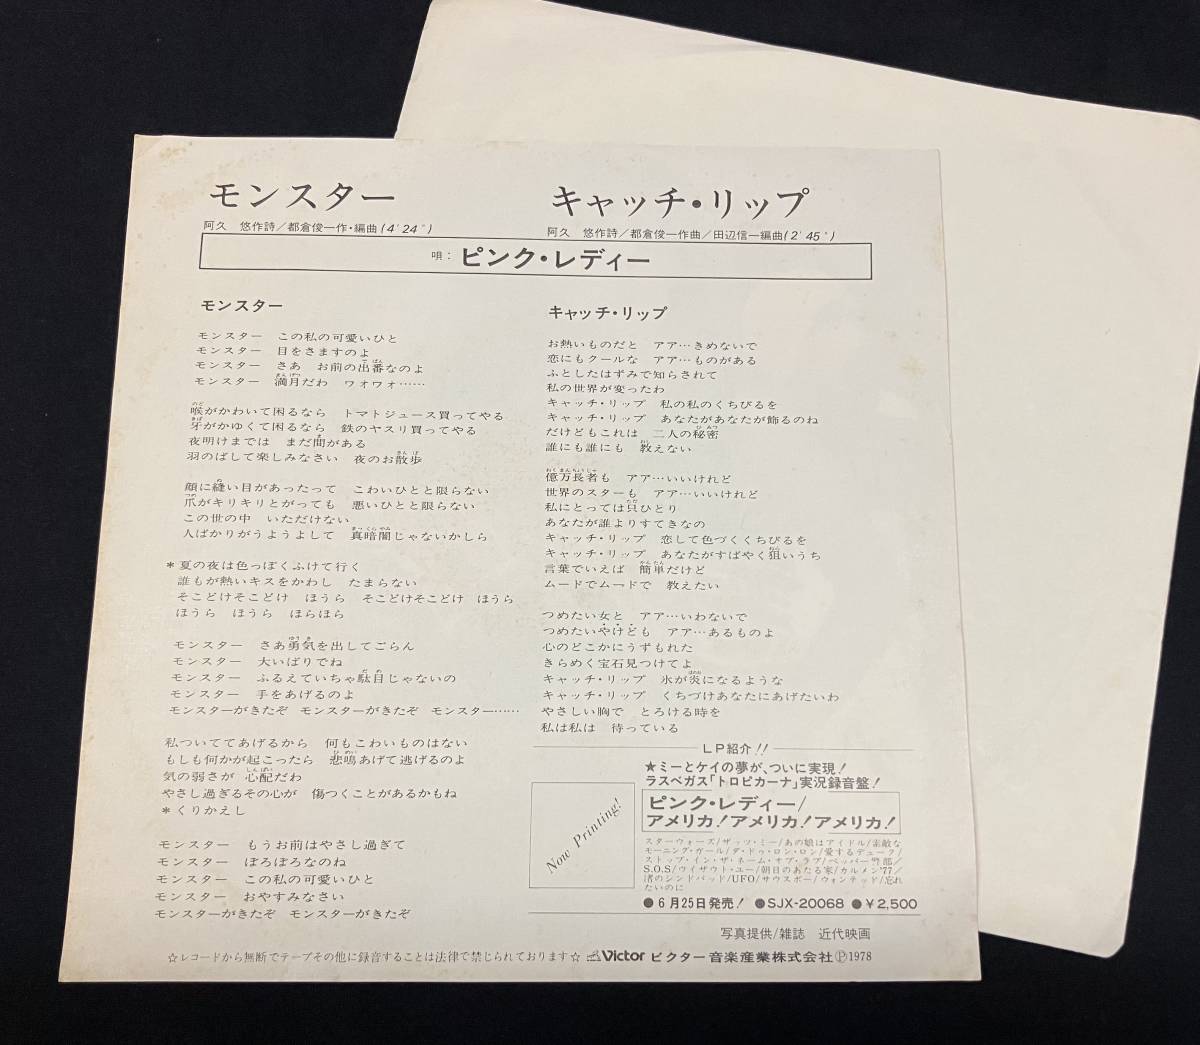 モンスター
阿久　悠作詩／都倉俊一作・編曲(4'24")
キャッチ・リップ
阿久　悠作詩／都倉俊一作曲／田辺信一編曲(2'45")
唄：ピンク・レディー
モンスター
モンスター　この私の可愛いひと
モンスター　目をさますのよ
モンスター　さあ　お前の出番なのよ
モンスター　満月だわ　ワォワォ……
喉がかわいて困るなら　トマトジュース買ってやる
牙がかゆくて困るなら　鉄のヤスリ買ってやる
夜明けまでは　まだ間がある
羽のばして楽しみなさい　夜のお散歩
顔に縫い目があったって　こわいひとと限らない
爪がキリキリとがっても　悪いひとと限らない
この世の中　いただけない
人ばかりがうようよして　真暗闇じゃないかしら
＊夏の夜は色っぽくふけて行く
誰もが熱いキスをかわし　たまらない
そこどけそこどけ　ほうら　そこどけそこどけ　ほうら
ほうら　ほうら　ほらほら
モンスター　さあ勇気を出してごらん
モンスター　大いばりでね
モンスター　ふるえていちゃ駄目じゃないの
モンスター　手をあげるのよ
モンスターがきたぞ　モンスターがきたぞ　モンスター……
私ついててあげるから　何もこわいものはない
もしも何かが起こったら　悲鳴あげて逃げるのよ
気の弱さが　心配だわ
やさし過ぎるその心が　傷つくことがあるかもね
＊くりかえし
モンスター　もうお前はやさし過ぎて
モンスター　ぼろぼろなのね
モンスター　この私の可愛いひと
モンスター　おやすみなさい
モンスターがきたぞ　モンスターがきたぞ
キャッチ・リップ
お熱いものだと　アア…きめないで
恋にもクールな　アア…ものがある
ふとしたはずみで知らされて
私の世界が変ったわ
キャッチ・リップ　私の私のくちびるを
キャッチ・リップ　あなたがあなたが飾るのね
だけどもこれは　二人の秘密
誰にも誰にも　教えない
億万長者も　アア…いいけれど
世界のスターも　アア…いいけれど
私にとっては只ひとり
あなたが誰よりすてきなの
キャッチ・リップ　恋して色づくくちびるを
キャッチ・リップ　あなたがすばやく狙いうち
言葉でいえば　簡単だけど
ムードでムードで　教えたい
つめたい女と　アア…いわないで
つめたいやけども　アア…あるものよ
心のどこかにうずもれた
きらめく宝石見つけてよ
キャッチ・リップ　氷が炎になるような
キャッチ・リップ　くちづけあなたにあげたいわ
やさしい胸で　とろける時を
私は私は　待っている
LP紹介!!
★ミーとケイの夢が、ついに実現！
ラスベガス「トロピカーナ」実況録音盤！
Now Printing!
ピンク・レディー/
アメリカ！アメリカ！アメリカ！
スターウォーズ/ザッツ・ミー/あの娘はアイドル/素敵な
モーニング・ガール/ダ・ドゥ・ロン・ロン/愛するデューク/
ストップ・イン・ザ・ネーム・オブ・ラブ/ペッパー警部/
S.O.S/ウイザウト・ユー/朝日のあたる家/カルメン'77/
渚のシンドバッド/UFO/サウスポー/ウォンテッド/忘れ
たいのに
●6月25日発売！ ●SJX-20068 ●¥2,500
写真提供/雑誌　近代映画
☆レコードから無断でテープその他に録音することは法律で禁じられております☆ Victor ビクター音楽産業株式会社Ⓟ1978